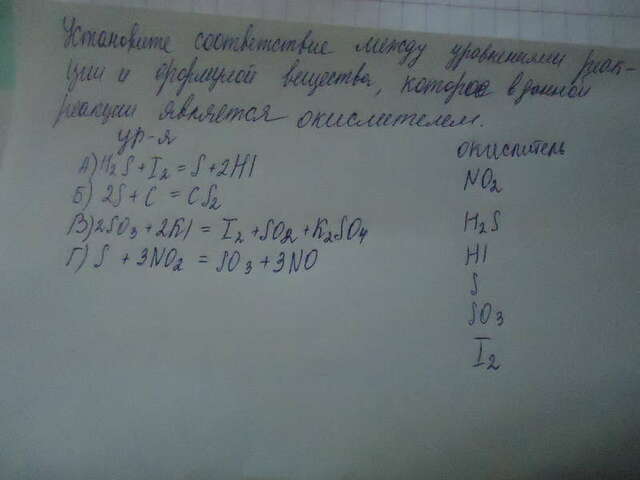 Установите соответствие между уравнениями реак-
ции и формулой вещества, которое в данной
реакции является окислителем.
ур-я
окислитель
А) H₂S + I₂ = S + 2HI
NO₂
Б) 2S + C = CS₂
В) 2SO₃ + 2KI = I₂ + SO₂ + K₂SO₄
H₂S
Г) S + 3NO₂ = SO₃ + 3NO
HI
S
SO₃
I₂